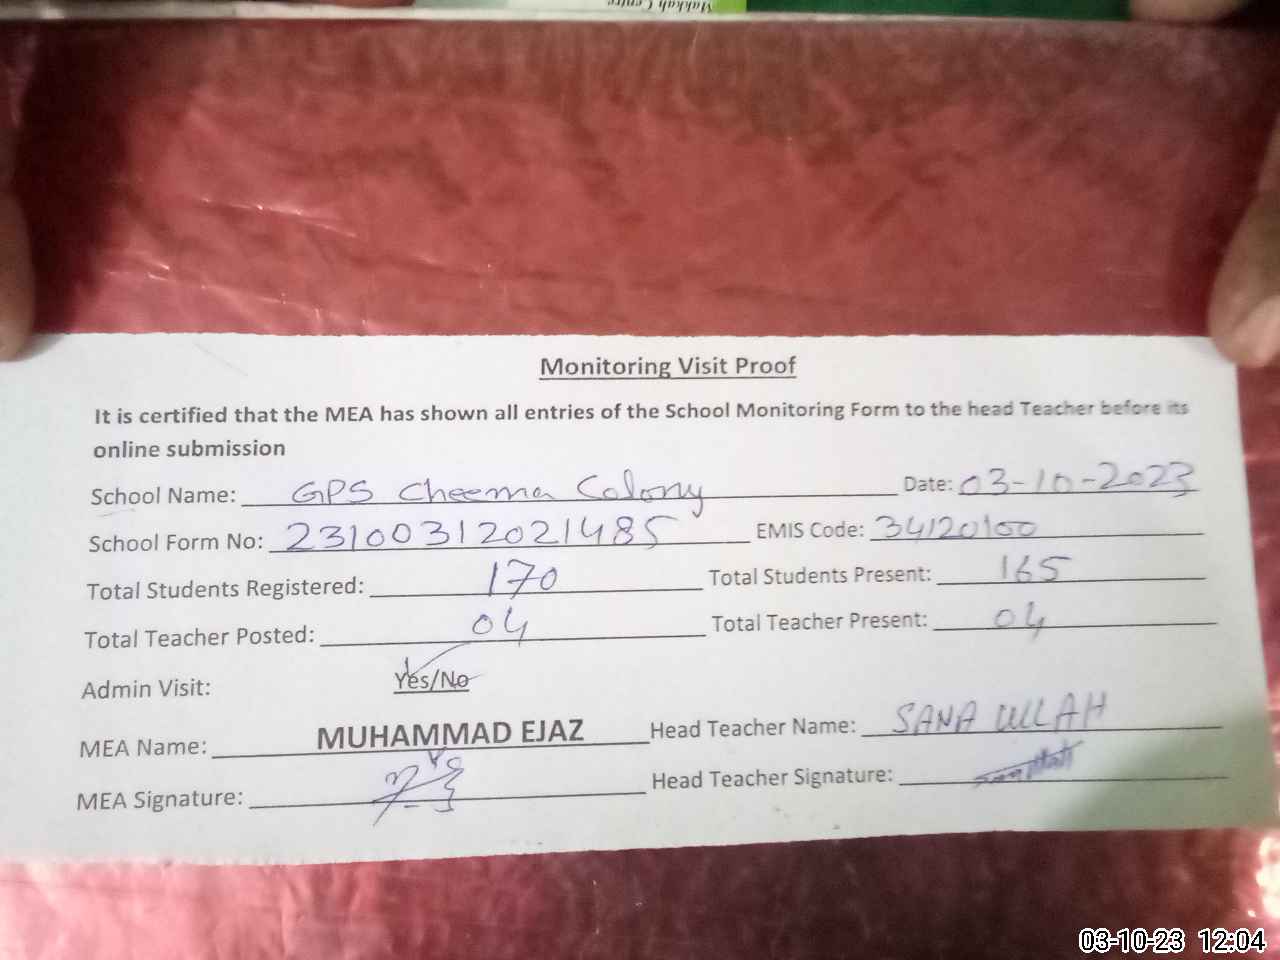 Makkah Centre
Monitoring Visit Proof
It is certified that the MEA has shown all entries of the School Monitoring Form to the head Teacher before its
online submission
School Name: GPS Cheema Colony Date: 03-10-2023
School Form No: 23100312021485 EMIS Code: 34120100
Total Students Registered: 170 Total Students Present: 165
Total Teacher Posted: 04 Total Teacher Present: 04
Admin Visit: Yes/No
MEA Name: MUHAMMAD EJAZ Head Teacher Name: SANA ULLAH
MEA Signature: Head Teacher Signature:
03-10-23 12:04